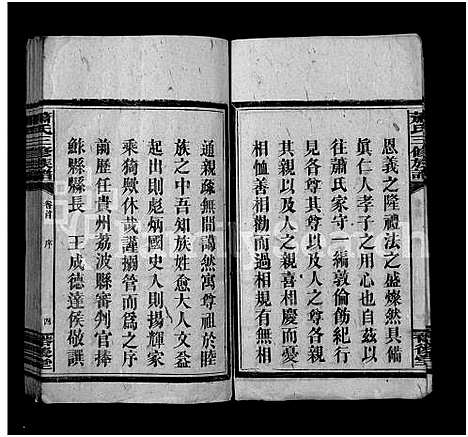 恩義之隆禮法之盛燦然具備
眞仁人孝子之用心也自茲以
往蕭氏家守一編敦倫飭紀行
見尊其尊以及人之尊各親
其親以及人之親喜相慶而憂
相恤善相勸而過相規有無相
通親疎無間藹然寓尊祖於睦
族之中吾知族姓愈大人文益
起出則彪炳國史入則揚輝家
乘猗歟休哉謹搦管而爲之序
前歷任貴州荔波縣審判官捧
鮇縣縣長 王成德達侯敬譔
蕭氏三修族譜
卷首 序 四